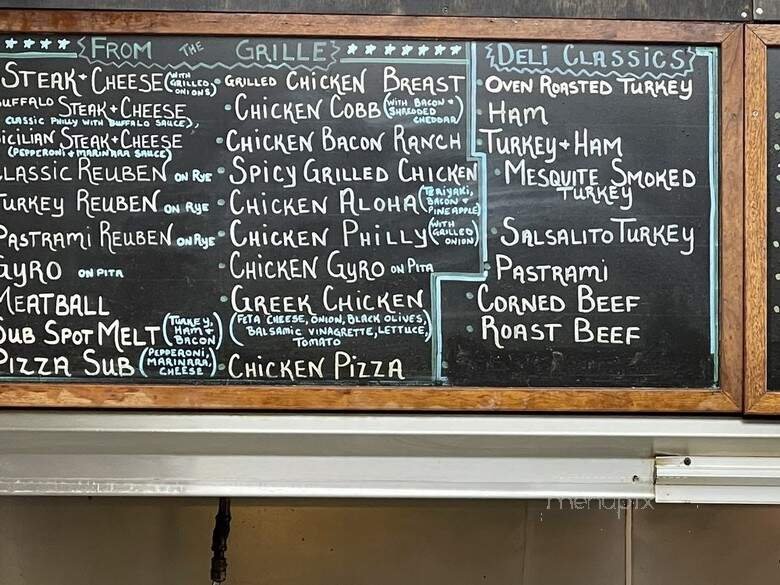 FROM THE GRILLE
STEAK + CHEESE (WITH GRILLED ONIONS)
BUFFALO STEAK + CHEESE
CLASSIC PHILLY WITH BUFFALO SAUCE),
SICILIAN STEAK + CHEESE
(PEPPERONI + MARINARA SAUCE)
CLASSIC REUBEN ON RYE
TURKEY REUBEN ON RYE
PASTRAMI REUBEN ON RYE
GYRO ON PITA
MEATBALL
SUB SPOT MELT (TURKEY, HAM + BACON)
PIZZA SUB (PEPPERONI, MARINARA, CHEESE)
GRILLED CHICKEN BREAST
CHICKEN COBB (WITH BACON + SHREDDED CHEDDAR)
CHICKEN BACON RANCH
SPICY GRILLED CHICKEN
CHICKEN ALOHA (TERIYAKI, BACON + PINEAPPLE)
CHICKEN PHILLY (WITH GRILLED ONION)
CHICKEN GYRO ON PITA
GREEK CHICKEN
(FETA CHEESE, ONION, BLACK OLIVES,
BALSAMIC VINAGRETTE, LETTUCE,
TOMATO)
CHICKEN PIZZA
DELI CLASSICS
OVEN ROASTED TURKEY
HAM
TURKEY + HAM
MESQUITE SMOKED
TURKEY
SALSALITO TURKEY
PASTRAMI
CORNED BEEF
ROAST BEEF
menupix